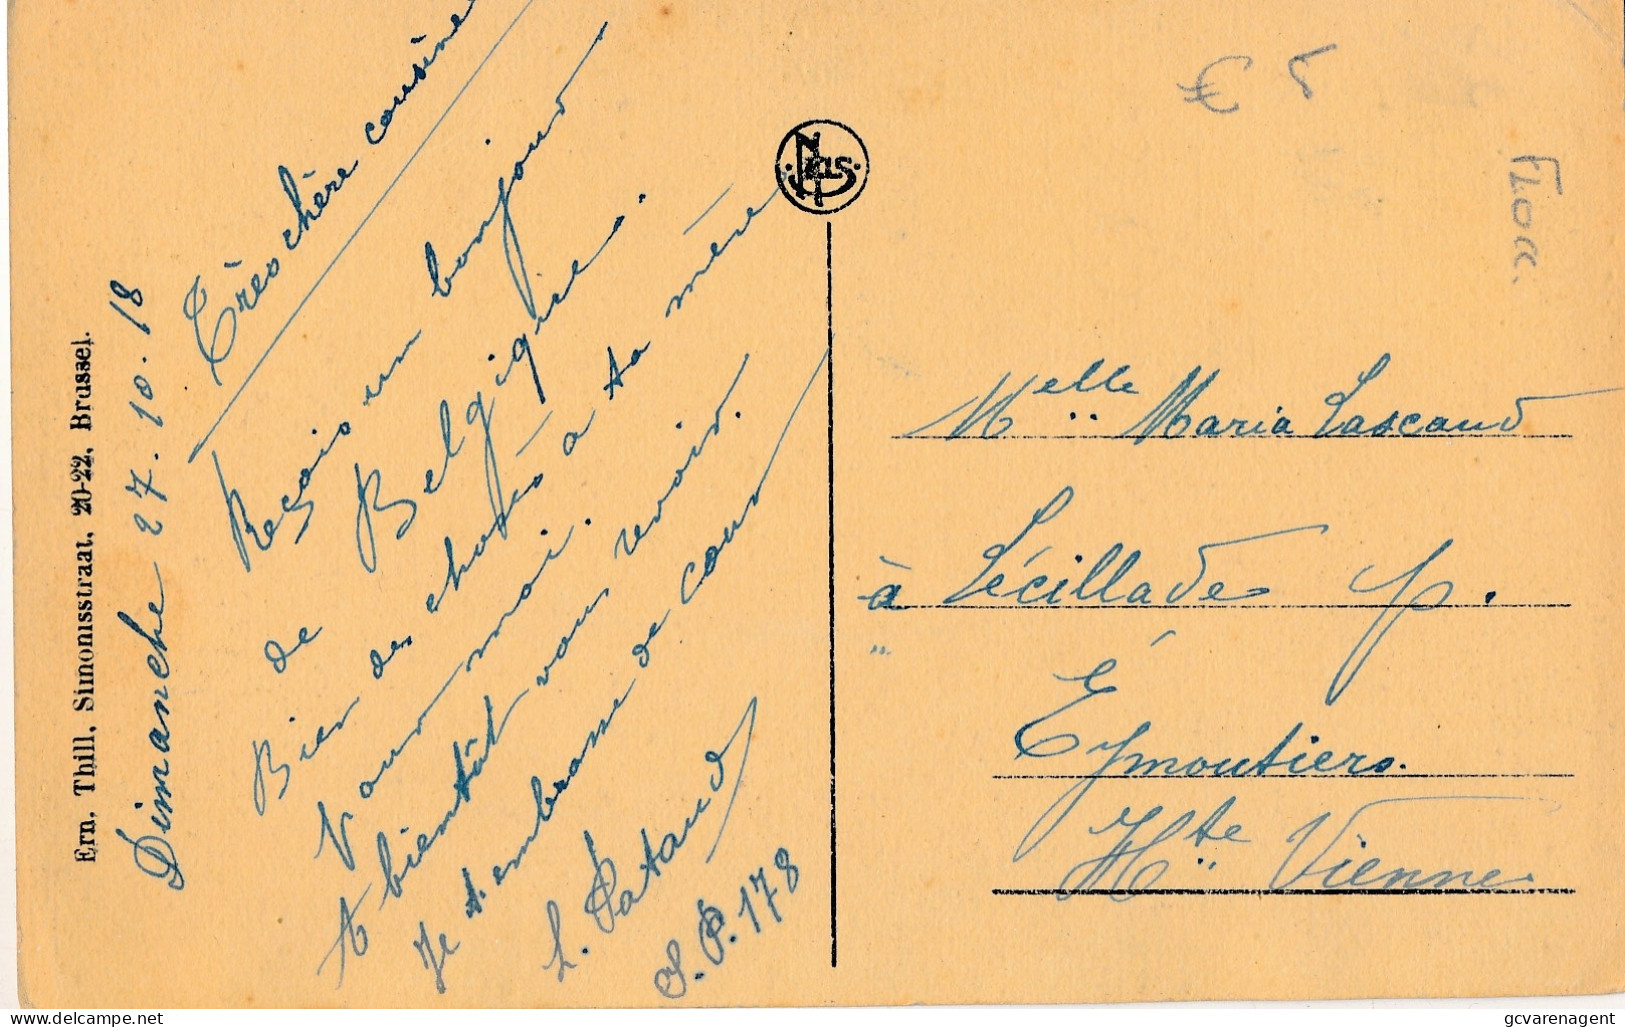 Ern. Thill, Simonisstraat, 20-22, Brussel.
Dimanche 27.10.18
Très chère cousine
Reçois un bonjour
de Belgique.
Bien des choses à ta mère
pour moi.
A bientôt vous revoir.
Je t'embrasse de cour
L. Pataud
S.P. 178
Nels
€ 5
Melle Maria Lascaud
à Lécillade p.
Eymoutiers.
Hte Vienne
gcvarenagent